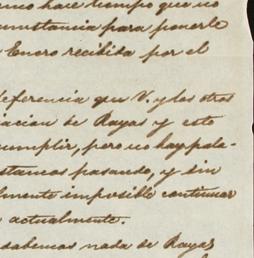 hace tiempo que no
cunstancia para ponerle
Enero recibida por el
deferencia que V. y los otros
iacion de Rayas y esto
cumplir, pero no hay pala-
stamos pasando, y sin
lmente imposible continuar
actualmente.
sabemos nada de Rayas